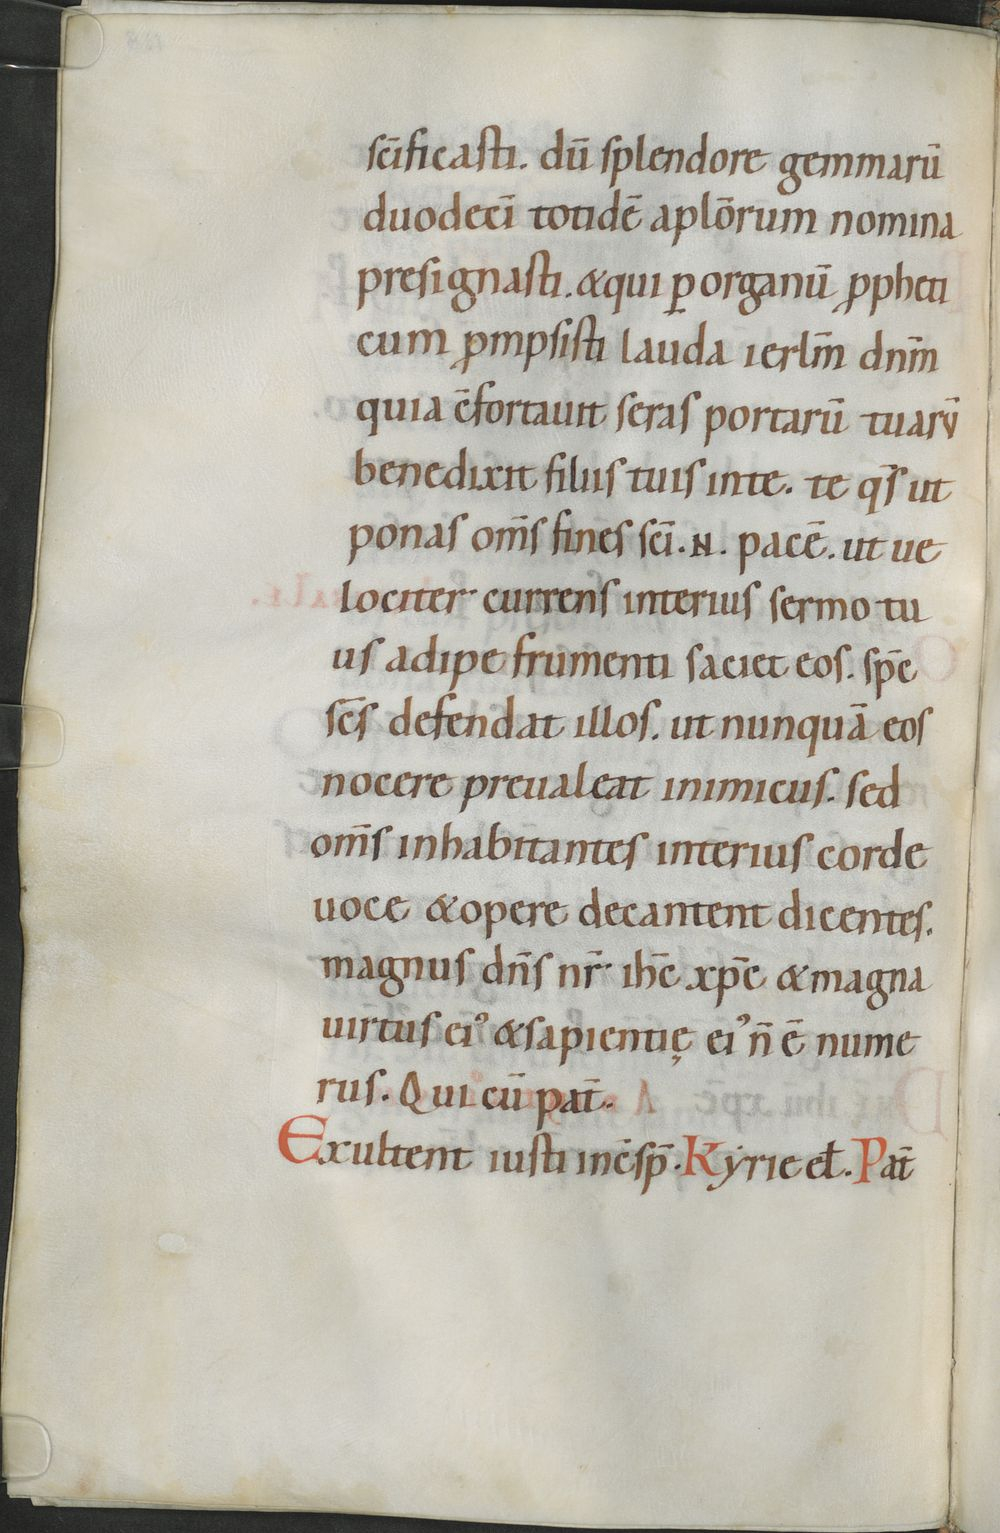 scīficasti. dū splendore gemmarū
duodecī totidē aplōrum nomina
presignasti. &qui ꝑ organū ꝓpheti
cum ꝓmpsisti lauda ierlm̄ dnm̄
quia c̄fortauit seras portarū tuarū
benedixit filiis tuis inte. te qs̄ ut
ponas om̄s fines scī. N. pacē. ut ue
lociter currens interius sermo tu
us adipe frumenti saciet eos. sp̄c
sc̄s defendat illos. ut nunquā eos
nocere preualeat inimicus. sed
om̄s inhabitantes interius corde
uoce &opere decantent dicentes.
magnus dn̄s nr̄ ih̄c xp̄c &magna
uirtus eiꝰ &sapientię eiꝰ n̄ ē nume
rus. Qui cū pat̄.
Exultent iusti inc̄sp̄. Kẏrie eƚ. Pat̄